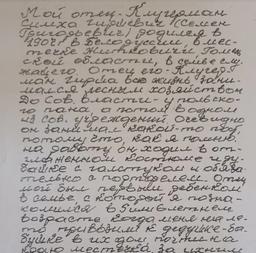 Мой отец - Клугерман
Симха Гиршевич (Семен
Григорьевич) родился в
1904г в Белоруссии, в мес-
течке Житковичи Гомель
ской области, в семье слу-
жащего. Отец его - Клугер-
ман Гирша всю жизнь зани-
мался лесным хозяйством
До Сов. власти - у польско-
го пана, а потом в одном
из сов. учреждений Очевидно
он занимал какой-то пост
потому что, как я помню,
на работу он ходил в от-
глаженном костюме и ру-
башке с галстуком и обяза-
тельно с портфелем. Отец
мой был первым ребенком
в семье, с которой я позна-
комился в 5 летнем
возрасте когда меня на ле-
то привозили к дедушке-ба-
бушке в их дом почти на
краю местечка, за ихним